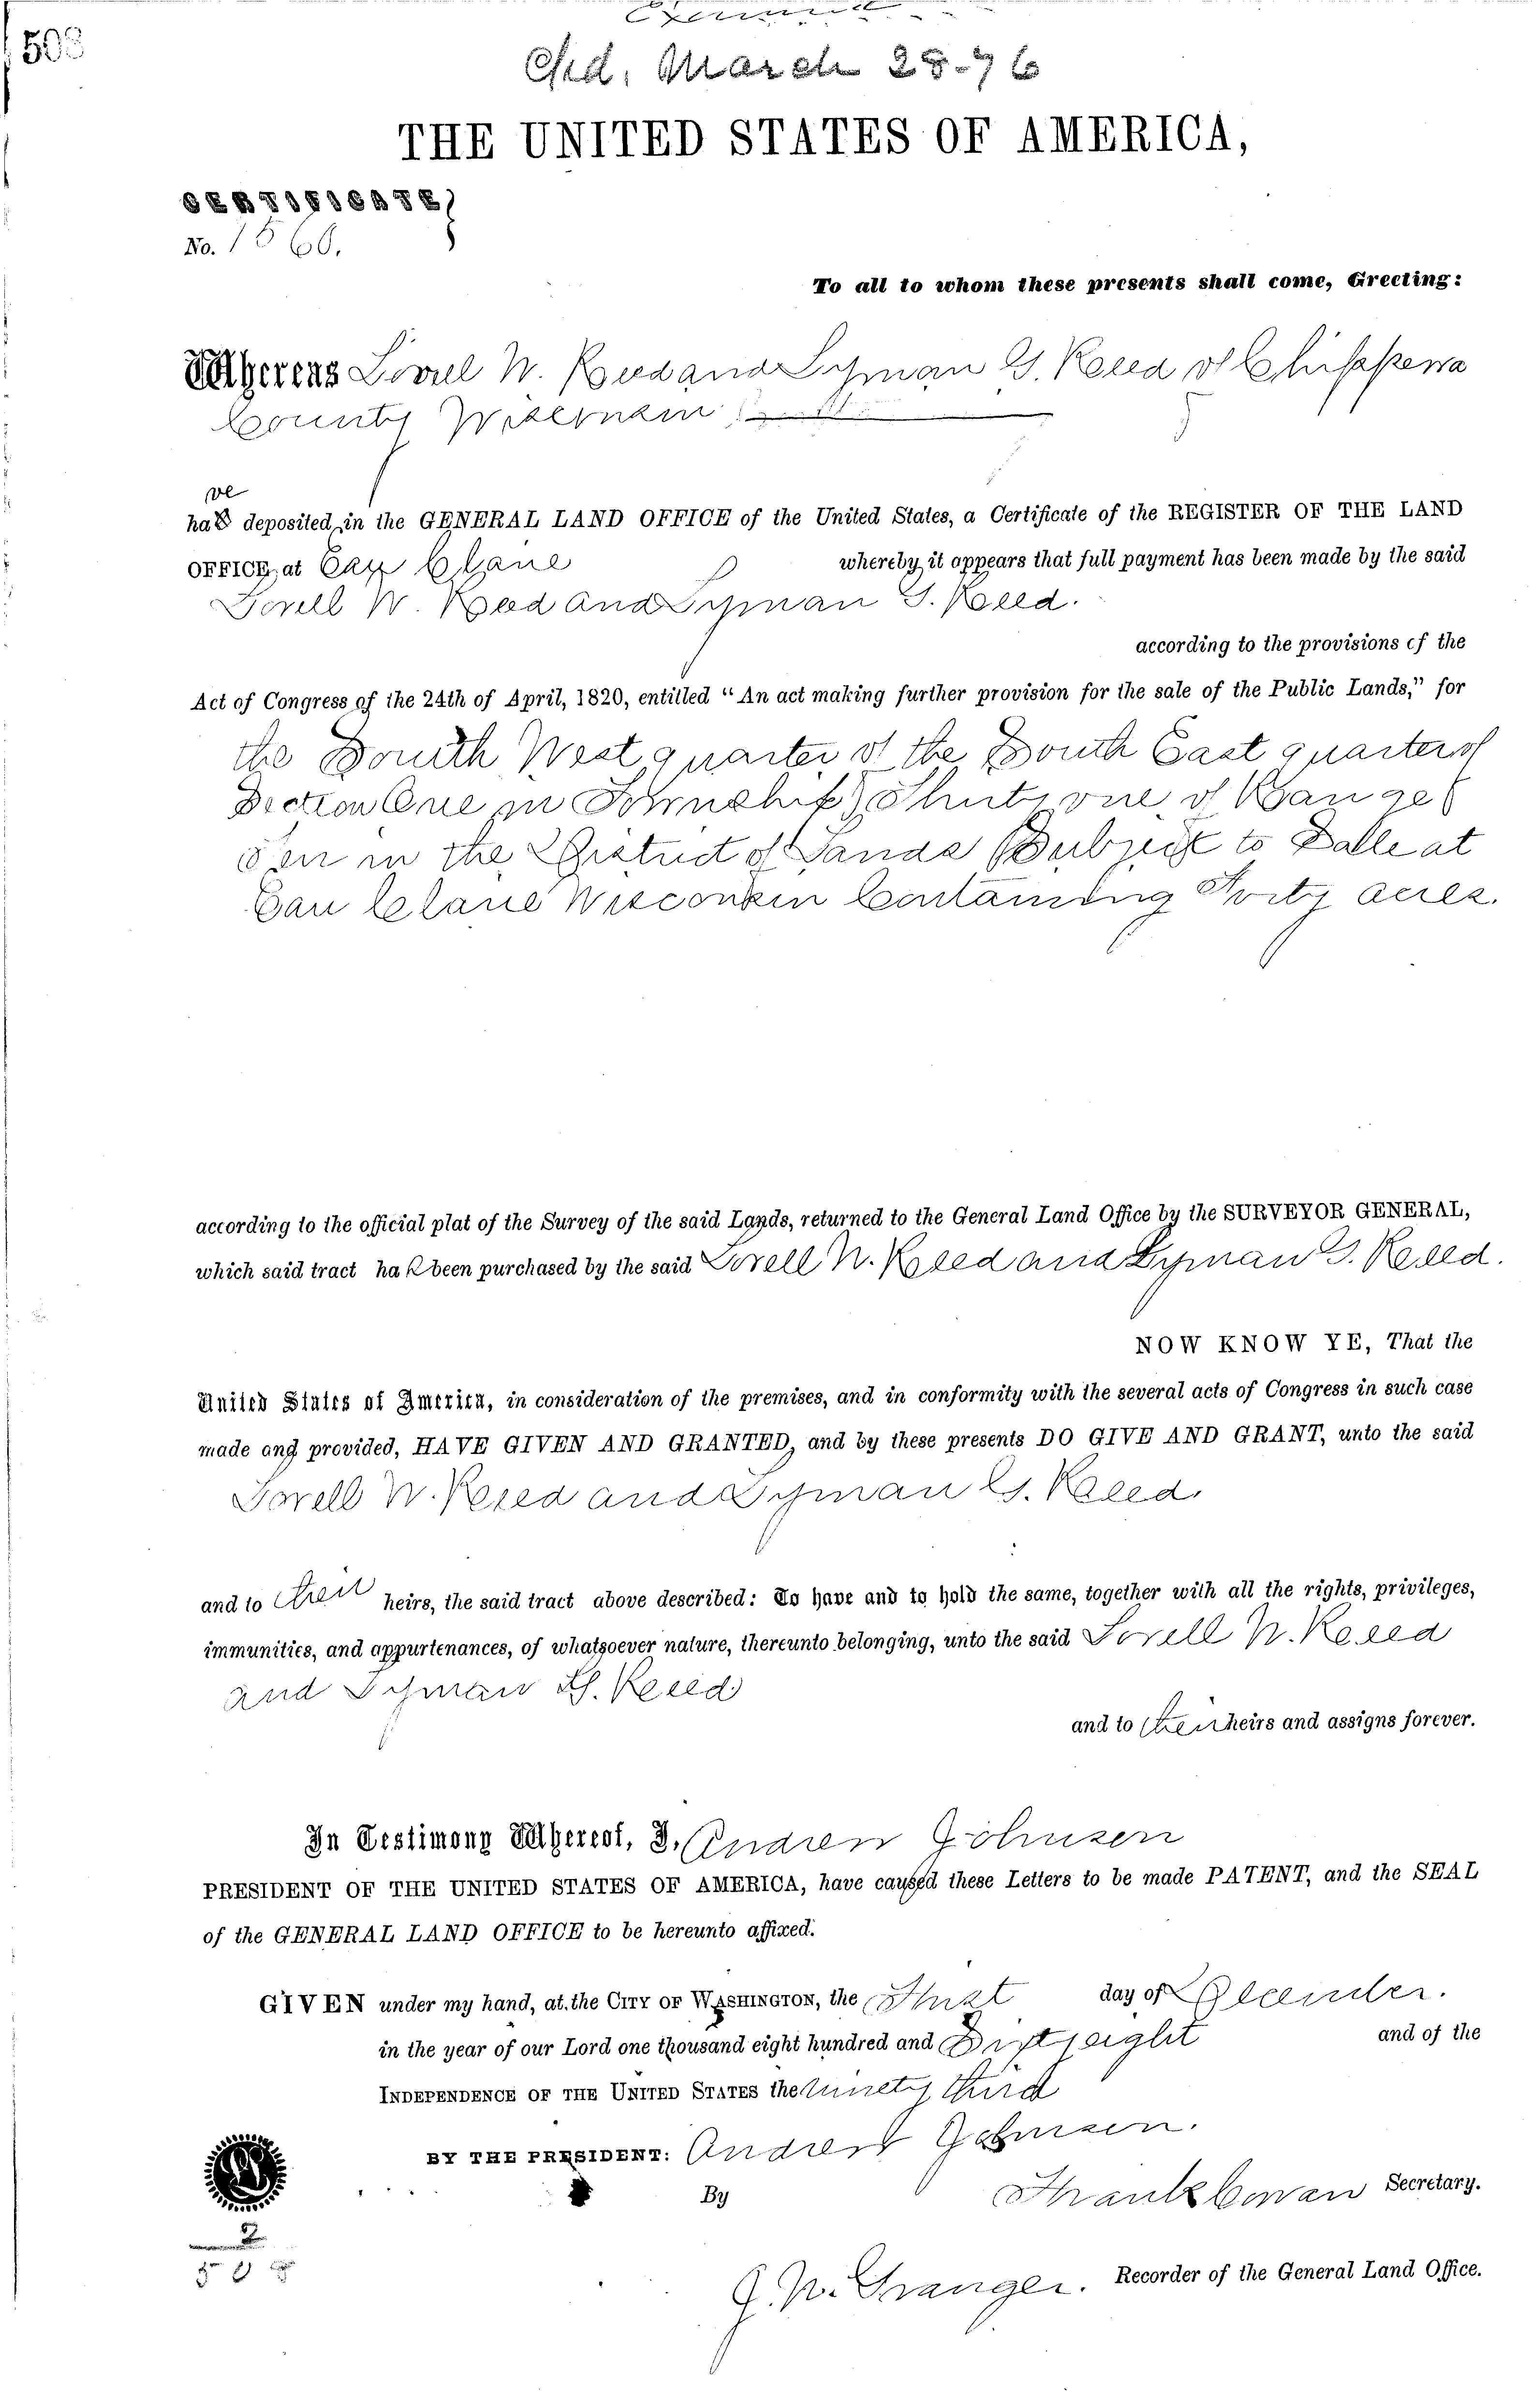 503
Exd. March 28-76
THE UNITED STATES OF AMERICA,
CERTIFICATE
No.
To all to whom these presents shall come, Greeting:
Whereas Lorell W. Reed and Lyman G. Reed of Chippewa
County Wisconsin
ve
has deposited in the GENERAL LAND OFFICE of the United States, a Certificate of the REGISTER OF THE LAND
OFFICE at Eau Claire whereby it appears that full payment has been made by the said
Lorell W. Reed and Lyman G. Reed.
according to the provisions of the
Act of Congress of the 24th of April, 1820, entitled "An act making further provision for the sale of the Public Lands," for
the South West quarter of the South East quarter of
Section One in Township Thirty one of Range
Ten in the District of Lands Subject to Sale at
Eau Claire Wisconsin Containing Forty acres.
according to the official plat of the Survey of the said Lands, returned to the General Land Office by the SURVEYOR GENERAL,
which said tract has been purchased by the said Lorell W. Reed and Lyman G. Reed.
NOW KNOW YE, That the
United States of America, in consideration of the premises, and in conformity with the several acts of Congress in such case
made and provided, HAVE GIVEN AND GRANTED, and by these presents DO GIVE AND GRANT, unto the said
Lorell W. Reed and Lyman G. Reed.
and to their heirs, the said tract above described: To have and to hold the same, together with all the rights, privileges,
immunities, and appurtenances, of whatsoever nature, thereunto belonging, unto the said Lorell W. Reed
and Lyman G. Reed
and to their heirs and assigns forever.
In Testimony Whereof, I, Andrew Johnson
PRESIDENT OF THE UNITED STATES OF AMERICA, have caused these Letters to be made PATENT, and the SEAL
of the GENERAL LAND OFFICE to be hereunto affixed.
GIVEN under my hand, at the CITY OF WASHINGTON, the First day of December.
in the year of our Lord one thousand eight hundred and Sixty eight and of the
INDEPENDENCE OF THE UNITED STATES the ninety third
BY THE PRESIDENT: Andrew Johnson.
By Frank Cowan Secretary.
2
J. N. Granger. Recorder of the General Land Office.